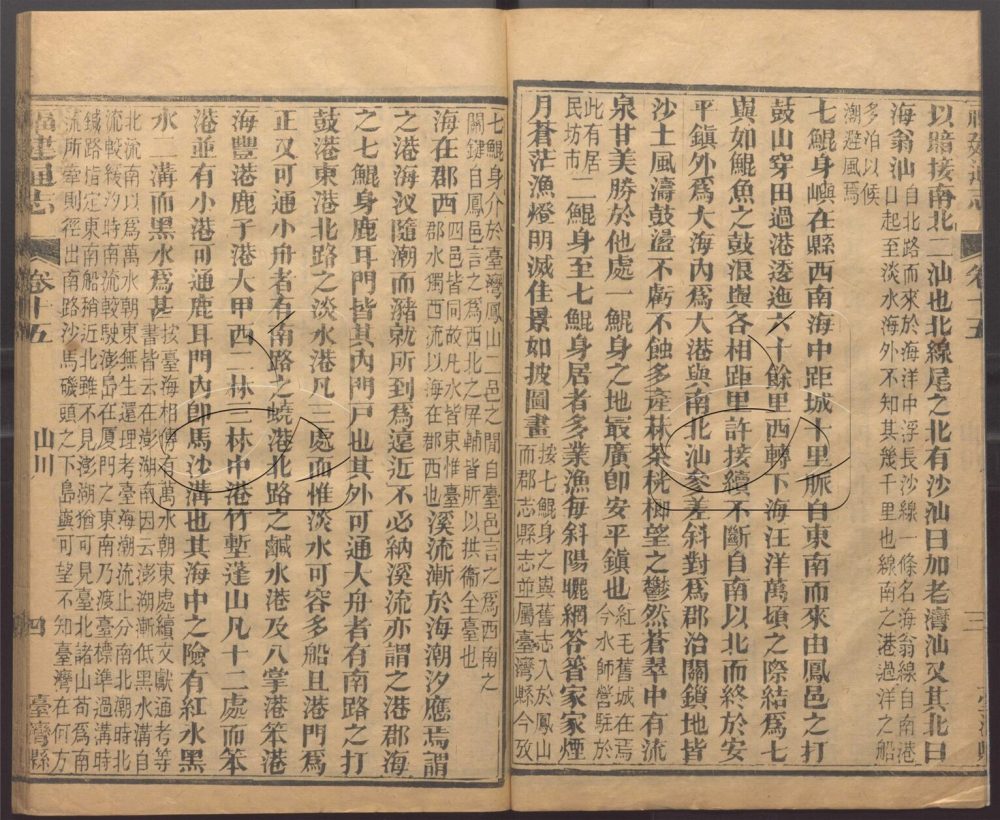 福建通志 卷十五 三
以暗接南北二汕也北線尾之北有沙汕曰加老灣汕又其北曰
海翁汕
自北路而來於海洋中浮長沙線一條名海翁線自南港
口起至淡水海外不知其幾千里也線南之港過洋之船
多泊以候
潮避風焉
七鯤身嶼在縣西南海中距城十里脈自東南而來由鳳邑之打
鼓山穿田過港逶迤六十餘里西轉下海汪洋萬頃之際結爲七
與如鯤魚之鼓浪與各相距里許接續不斷自南以北而終於安
平鎮外爲大海內爲大港與南北汕參差斜對爲郡治關鎖地皆
沙土風濤鼓盪不虧不蝕多產林荼桄榔望之鬱然蒼翠中有流
泉甘美勝於他處一鯤身之地最廣卽安平鎮也
紅毛舊城在焉
今水師營駐於
此有居
民坊市
二鯤身至七鯤身居者多業漁海斜陽曬網笭箵家家煙
月蒼茫漁燈明滅佳景如披圖畫
按七鯤身之嶼舊志入於鳳山
而郡志縣志並屬臺灣縣今攷
七鯤身介於臺灣鳳山二邑之閒自臺邑言之爲西南之
關鍵自鳳邑言之爲西北之屏輔皆所以拱衞全臺也
海在郡西
四邑皆同故凡水皆東惟臺
郡水獨西流以海在郡西也
溪流漸於海潮汐應焉謂
之港海汊隨潮而瀦就所到爲遠近不必納溪流亦謂之港郡海
之七鯤身鹿耳門皆其內門戶也其外可通大舟者有南路之打
鼓港東港北路之淡水港凡三處而惟淡水可容多船且港門爲
正又可通小舟者有南路之蟯港北路之鹹水港及八掌港笨港
海豐港鹿子港大甲西二林三林中港竹塹蓬山凡十二處而笨
港並有小港可通鹿耳門內卽馬沙溝也其海中之險有紅水黑
水二溝而黑水爲甚
按臺海相傳有萬水朝東處續文獻通考等
書皆云在澎湖南因云澎湖漸低黑水溝自
北流南以爲萬水朝東無生還理考臺海潮流止分南北潮時北
流較緩汐時南流較駛澎島在厦門之東南乃渡臺標準過溝時
鍼路指定東南船稍近北雖不見澎湖猶可見臺北諸山苟爲南
流所牽則徑出南路沙馬磯頭之下島嶼可望不知臺灣在何方
福建通志 卷十五 山川 四 臺灣縣